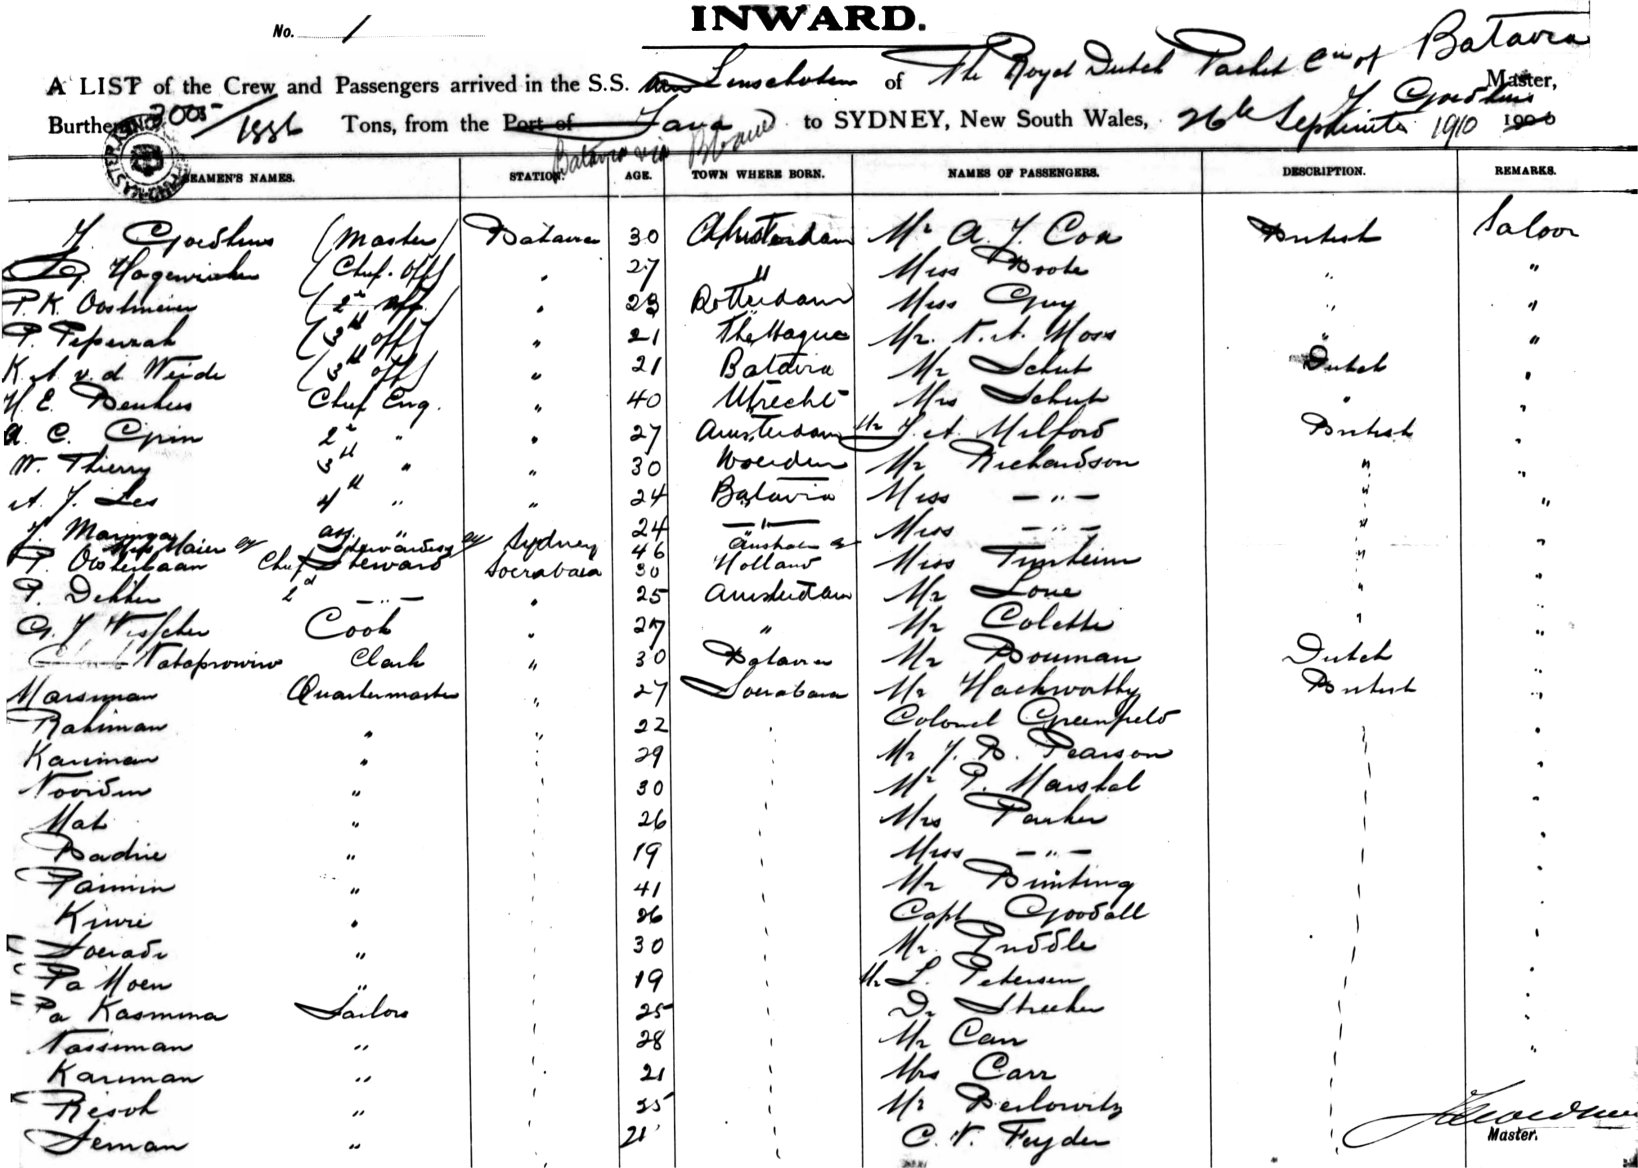 INWARD.
No. 1
A LIST of the Crew and Passengers arrived in the S.S. van Linschoten of The Royal Dutch Packet Co of Batavia Master,
J. Goedhuis
Burthen 3005/1886 Tons, from the Port of Java to SYDNEY, New South Wales, 26th September 1910 190
Batavia via Brisbane
SEAMEN'S NAMES. STATION. AGE. TOWN WHERE BORN. NAMES OF PASSENGERS. DESCRIPTION. REMARKS.
J. Goedhuis (Master) Batavia 30 Amsterdam Mr A. J. Cox British Saloon
(Chief. Off) " 27 " Miss Poole " "
P. K. Oostmeier (2nd Off.) " 23 Rotterdam Miss Guy " "
P. (3th off) " 21 The Hague Mr. N. A. Moss " "
K A v. d Weide (3th off) " 21 Batavia Mr Schut Dutch "
H. E. Chief Eng. " 40 Utrecht Mrs Schut " "
A. C. 2nd " " 27 Amsterdam Mr J. A. Milford British "
W. Thierry 3th " " 30 Woerden Mr Richardson " "
A. J. Les 4th " " 24 Batavia Miss — " — " "
J. Maringa ass. " " 24 — " — Miss — " — "
Mrs Maier Stewardess Sydney 46 Australia
P. Oosterbaan Chief Steward Soerabaia 30 Holland Miss " "
P. Dekker 2d — " — " 25 Amsterdam Mr Love " "
G. J. Visscher Cook " 27 " Mr Colette " "
Natoprowiro Clerk " 30 Batavia Mr Bouman Dutch "
Marsiman Quartermaster " 27 Soerabaia Mr Hackworthy British "
Rahiman " " 22 " Colonel Greenfield " "
Kariman " " 29 " Mr J. B. Pearson " "
Noordin " " 30 " Mr P. Marshal " "
Mat " " 26 " Mrs Parker " "
Badrie " " 19 " Miss — " — " "
Paimin " " 41 " Mr Bunting " "
Kiwri " " 26 " Capt Goodall " "
Soeradi " " 30 " Mr. Puddle " "
Pa Moen " " 19 " Mr L. Petersen " "
Pa Kasmina Sailors " 25 " Dr Streeker " "
Nassiman " " 28 " Mr Carr " "
Kariman " " 21 " Mrs Carr "
Resoh " " 25 " Mr Berlowitz "
Seman " 21 " C. V. Feyder "
J. Goedhuis
Master.